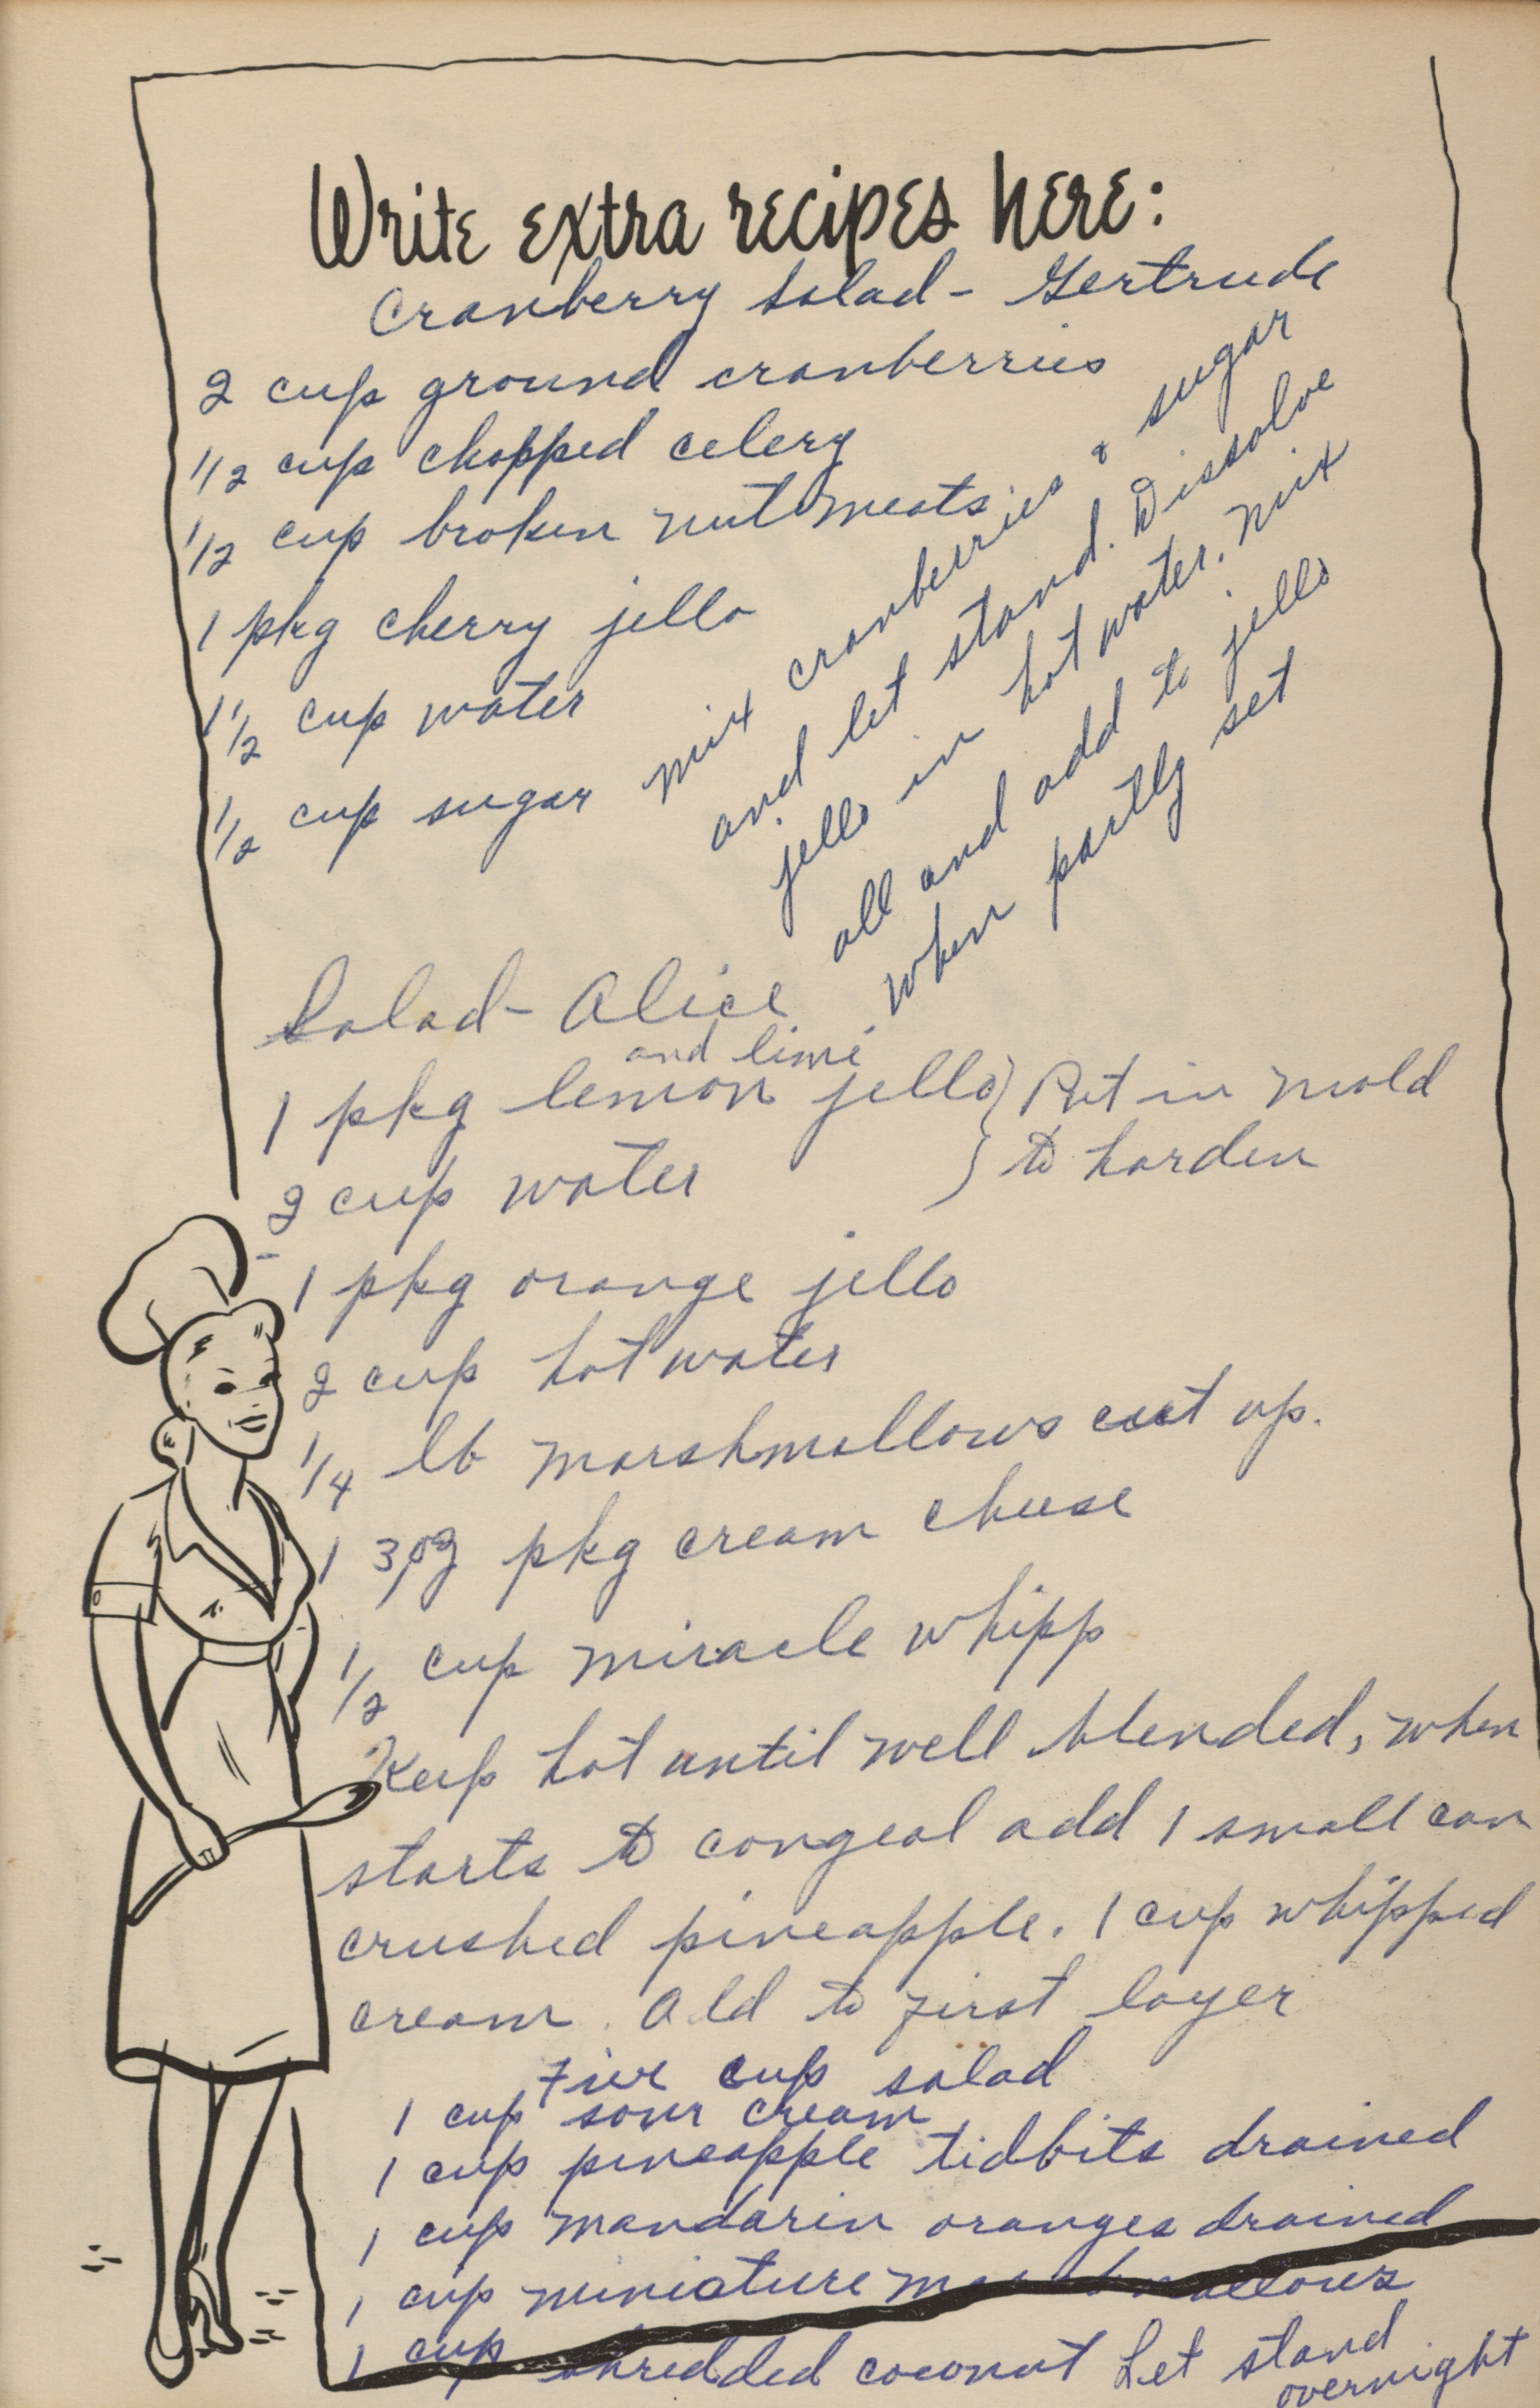 Write extra recipes here:
Cranberry Salad - Gertrude
2 cup ground cranberries
1/2 cup chopped celery
1/2 cup broken nutmeats
1 pkg cherry jello
1 1/2 cup water
1/2 cup sugar
mix cranberries & sugar
and let stand. Dissolve
jello in hot water. mix
all and add to jello
when partly set
Salad - Alice
and lime
1 pkg lemon jello } Put in mold
2 cup water } to harden
1 pkg orange jello
2 cup hot water
1/4 lb marshmallows cut up.
1 3 oz pkg cream cheese
1/2 cup miracle whipp
Keep hot until well blended, when
starts to congeal add 1 small can
crushed pineapple. 1 cup whipped
cream. Add to first layer
Five cup salad
1 cup sour cream
1 cup pineapple tidbits drained
1 cup mandarin oranges drained
1 cup miniature marshmallows
1 cup shredded coconut Let stand
overnight